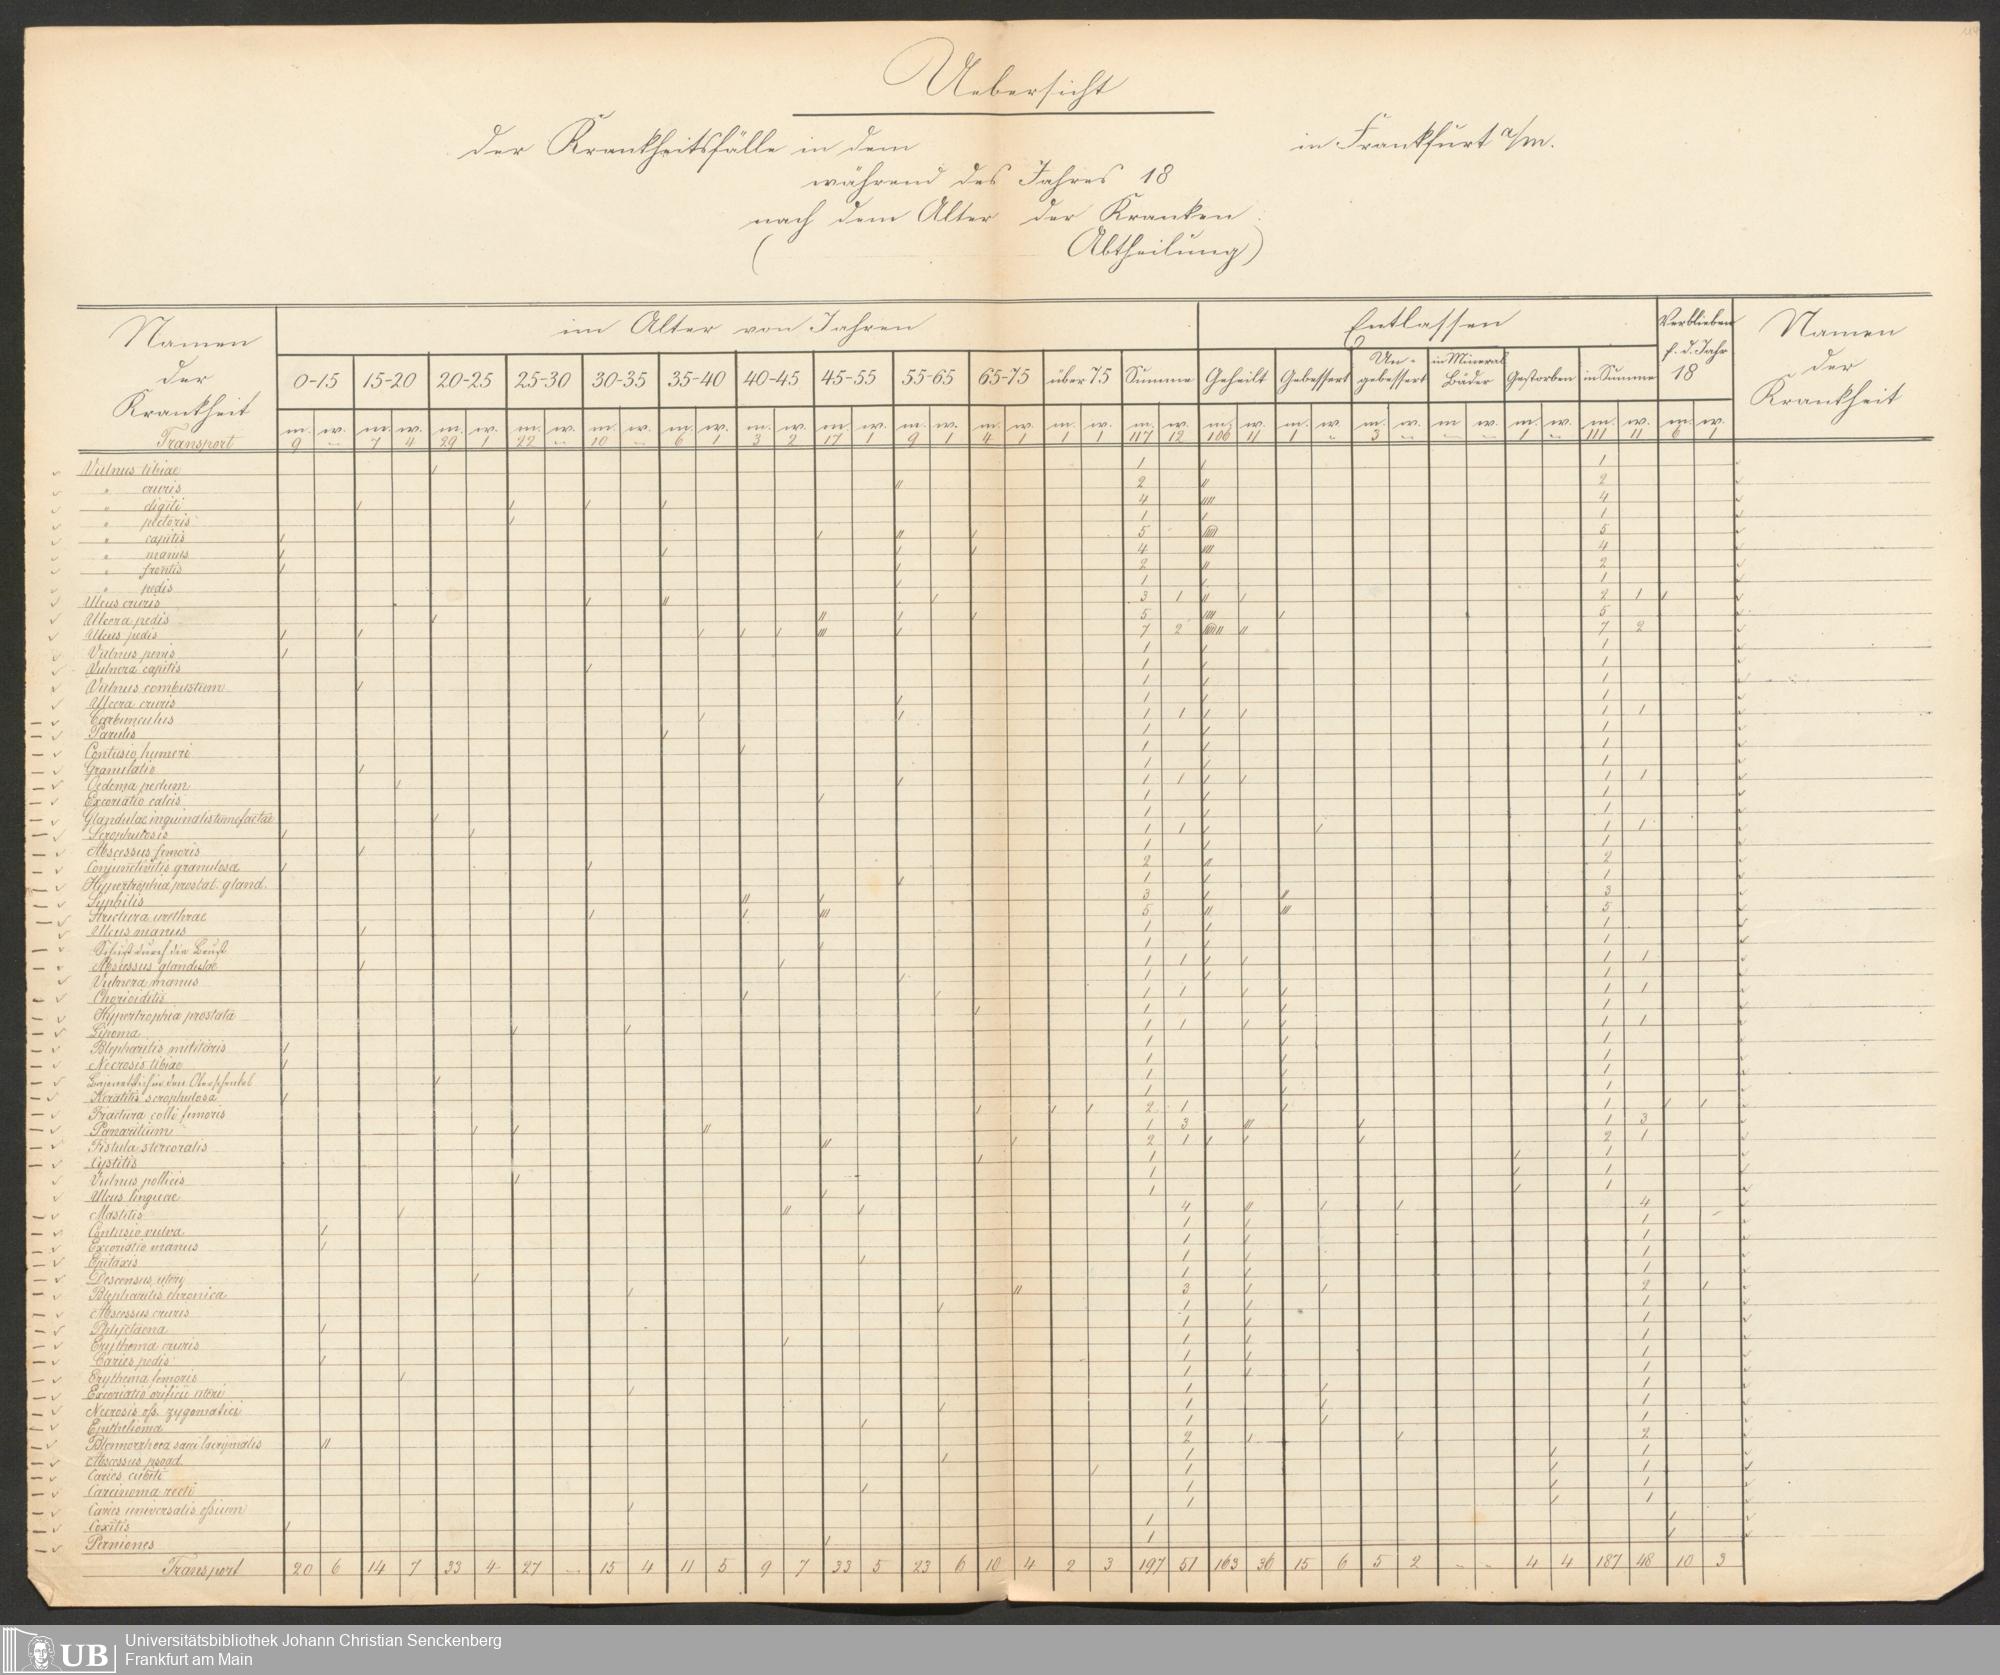 Uebersicht
der Krankheitsfälle in dem in Frankfurt a/m.
während des Jahres 18
nach dem Alter der Kranken
( Abtheilung)
Namen der Krankheit im Alter von Jahren Entlassen Verblieben f. d. Jahr 18 Namen der Krankheit
0-15 15-20 20-25 25-30 30-35 35-40 40-45 45-55 55-65 65-75 über 75 Summe Geheilt Gebessert Un-gebessert in Mineral Bäder Gestorben in Summe
m. w. m. w. m. w. m. w. m. w. m. w. m. w. m. w. m. w. m. w. m. w. m. w. m. w. m. w. m. w. m. w. m. w. m. w. m. w.
Transport 9 - 7 4 29 1 22 - 10 - 6 1 3 2 17 1 9 1 4 1 1 1 117 12 106 11 1 - 3 - - - 1 - 111 11 6 1
Vulnus tibiae / 1 / 1
" cruris // 2 // 2
" digiti / / / / 4 //// 4
" pectoris / 1 / 1
" capitis / / // / 5 5
" manus / / / / 4 //// 4
" frontis / / 2 // 2
" pedis / 1 / 1
Ulcus cruris / // / 3 1 // / 2 1 /
Ulcera pedis / // / / 5 //// / 5
Ulcus pedis / / / / / /// / 7 2 // 7 2
Vulnus penis / 1 / 1
Vulnera capitis / 1 / 1
Vulnus combustum / 1 / 1
Ulcera cruris / 1 / 1
Carbunculus / / 1 1 / / 1 1
Parulis / 1 / 1
Contusio humeri / 1 / 1
Granulatio / 1 / 1
Oedema pedum / / 1 1 / / 1 1
Excoriatio calcis / 1 / 1
Glandulae inguinalis tumefactae / 1 / 1
Scrophulosis / / 1 1 / / 1 1
Abscessus femoris / 1 / 1
Conjunctivitis granulosa / / 2 // 2
Hypertrophia prostat. gland. / 1 / 1
Syphilis // / 3 / // 3
Strictura urethrae / / /// 5 // /// 5
Ulcus manus / 1 / 1
Schuß durch die Brust / 1 / 1
Abscessus glandulae / / 1 1 / / 1 1
Vulnera manus / 1 / 1
Chorioiditis / / 1 1 / / 1 1
Hypertrophia prostata / 1 / 1
Lipoma / / 1 1 / / 1 1
Blepharitis / 1 / 1
Necrosis tibiae / 1 / 1
den Oberschenkel / 1 / 1
Keratitis scrophulosa / 1 / 1
Fractura colli femoris / / / 2 1 / 1 / /
Panaritium / / // 1 3 /// / 1 3
Fistula stercoralis // / 2 1 / / / 2 1
Cystitis / 1 / 1
Vulnus pollicis / 1 / 1
Ulcus linguae / 1 / 1
Mastitis / // / 4 // / / 4
Contusio vulva / 1 / 1
Excoriatio manus / 1 / 1
Epitaxis / 1 / 1
Descensus utery / 1 / 1
Blepharitis chronica / // 3 / / 2 /
Abscessus cruris / 1 / 1
Phlyctaena / 1 / 1
Erythema cruris / 1 / 1
Caries pedis / 1 / 1
Erythema femoris / 1 / 1
Excoriatio orificii uteri / 1 / 1
Necrosis oss. zygomatici / 1 / 1
Epithelioma / 1 / 1
Blennorrhoea sacci lacrymalis // 2 / / 2
Abscessus psoad. / 1 / 1
Caries cubiti / 1 / 1
Carcinoma recti / 1 / 1
Caries universalis ossium / 1 / 1
Coxitis / 1 /
Perniones / 1 /
Transport 20 6 14 7 33 4 27 - 15 4 11 5 9 7 33 5 23 6 10 4 2 3 197 51 163 36 15 6 5 2 - - 4 4 187 48 10 3
UB
Universitätsbibliothek Johann Christian Senckenberg
Frankfurt am Main